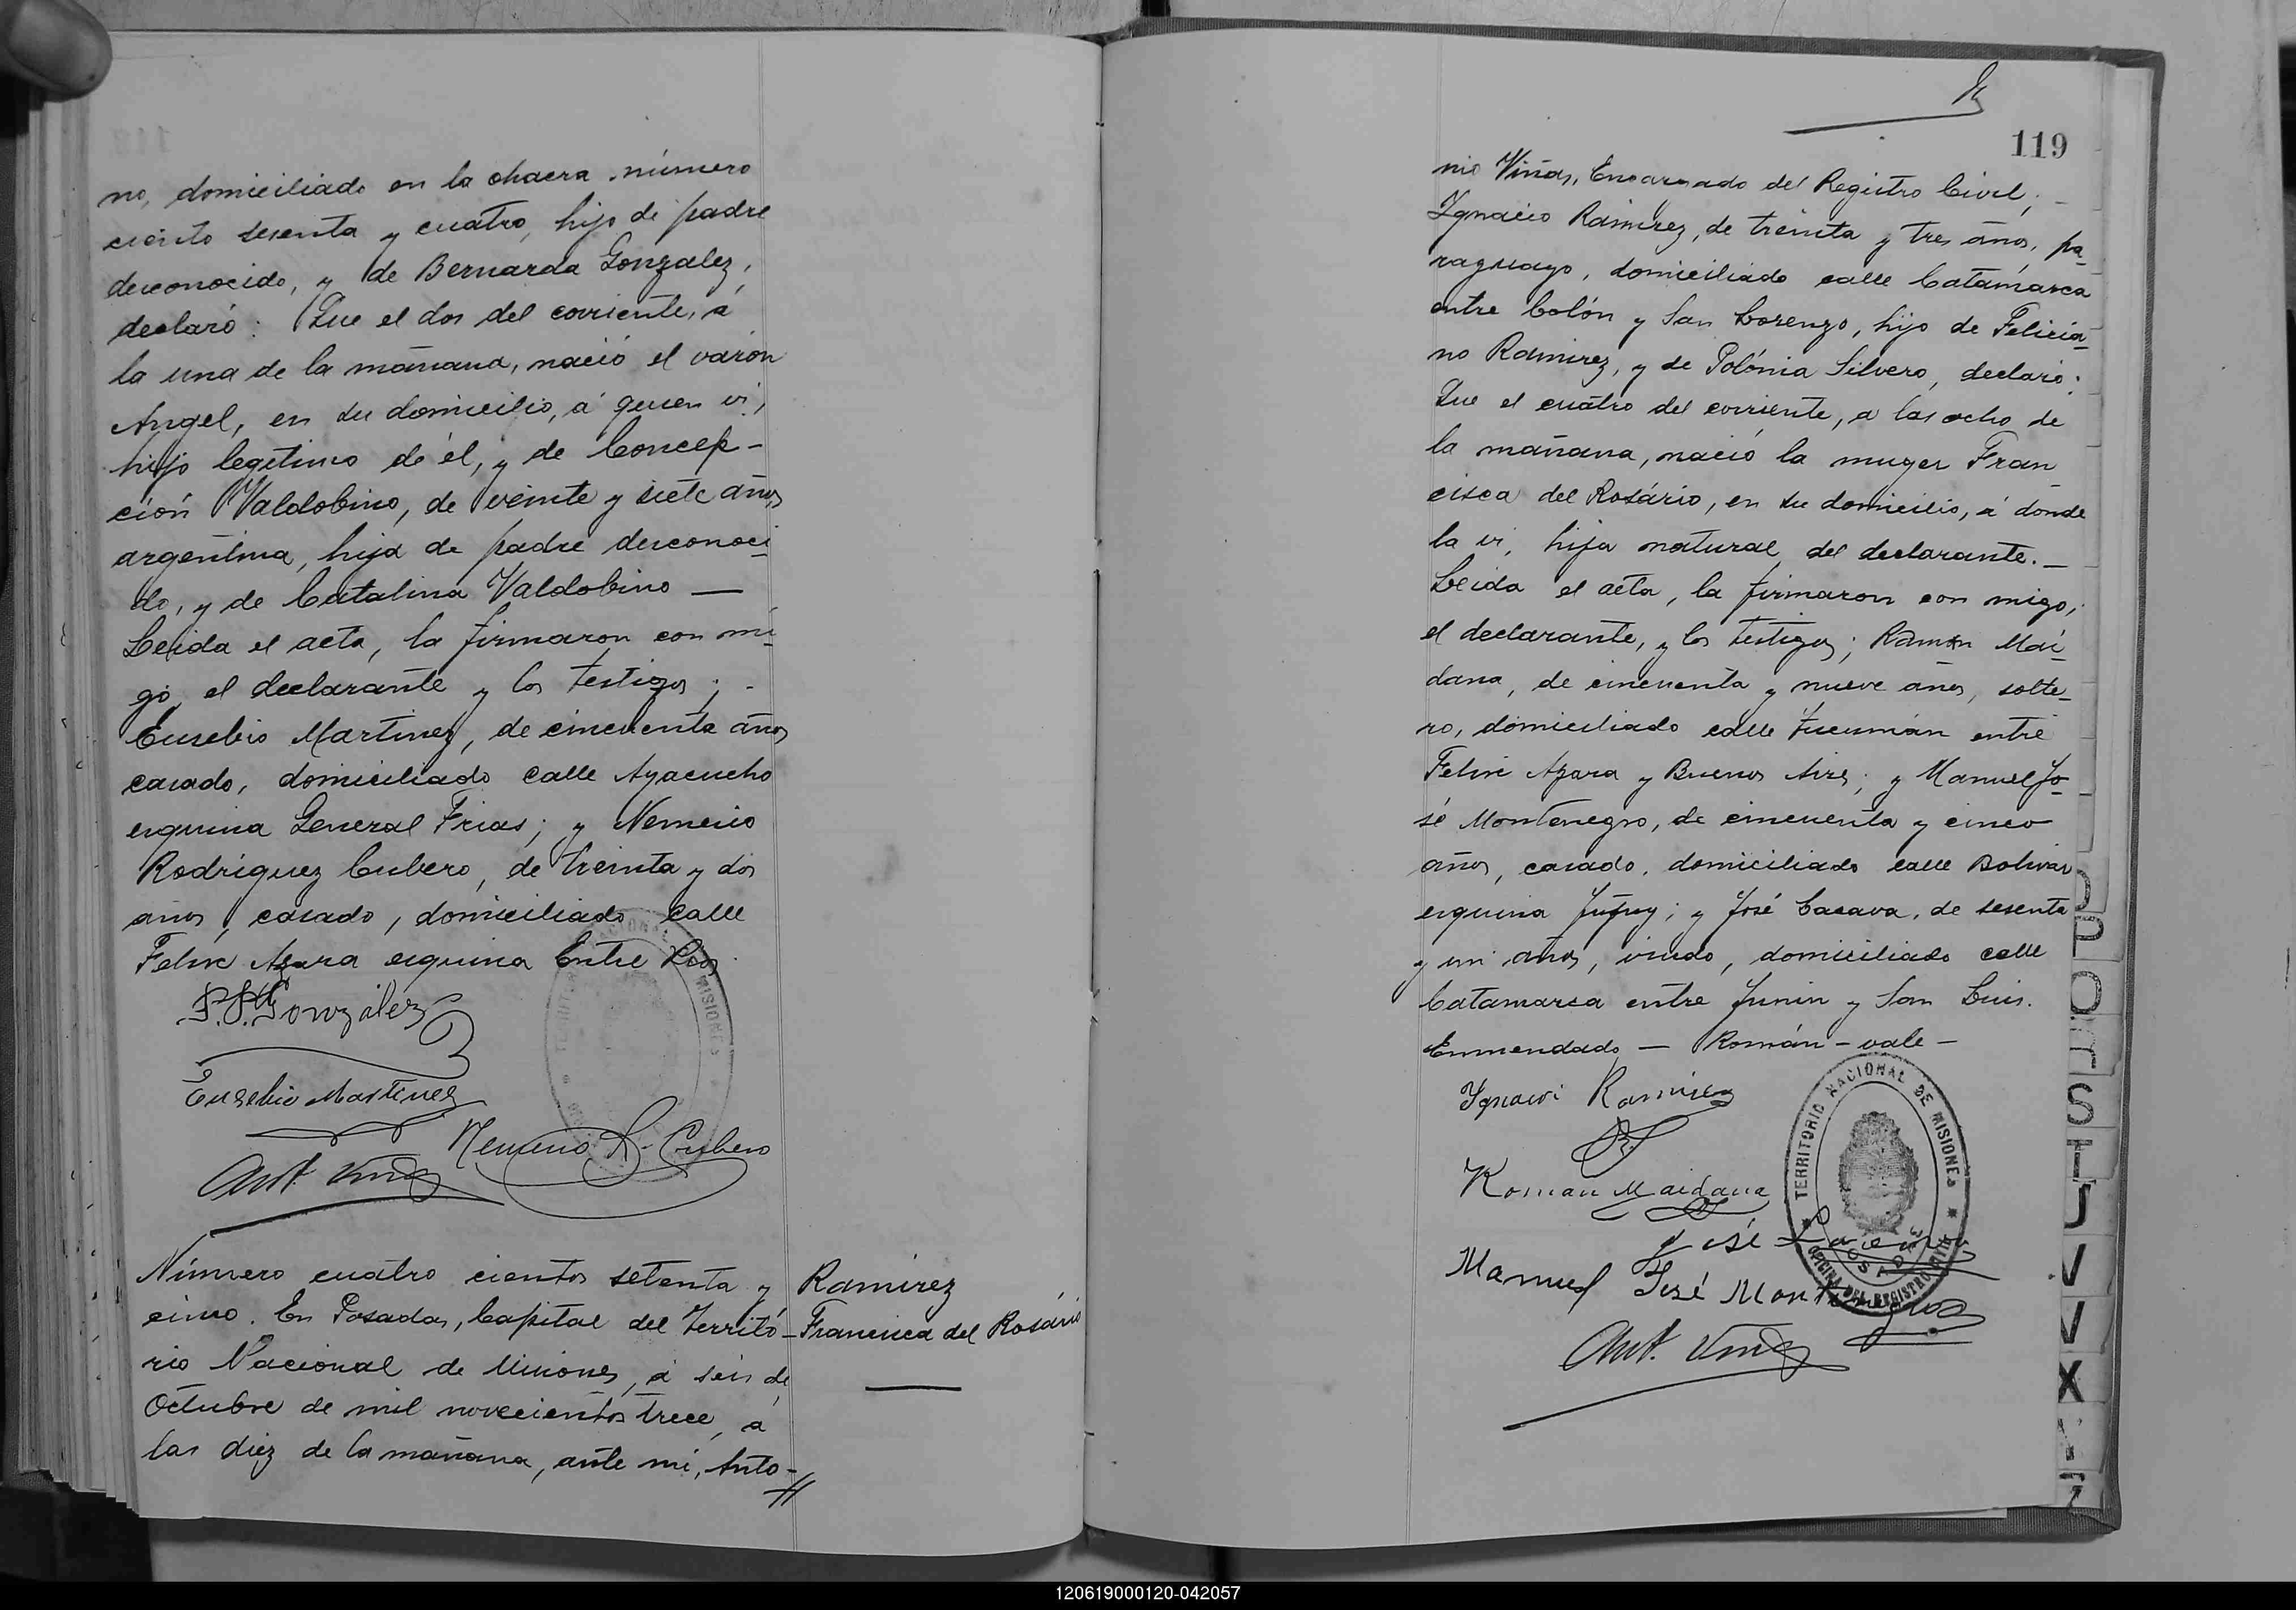 no, domiciliado en la chacra número
ciento sesenta y cuatro, hijo de padre
desconocido, y de Bernarda Gonzalez,
declaró: Que el dos del corriente, á
la una de la mañana, nació el varón
Angel, en su domicilio, á quien vi,
hijo legítimo de él, y de Concep-
ción Valdobino, de veinte y siete años
argentina, hija de padre desconoci-
do, y de Catalina Valdobino —
Leida el acta, la firmaron con mi-
go, el declarante y los testigos; -
Eusebio Martinez, de cincuenta años
casado, domiciliado calle Ayacucho
esquina General Frias; y Nemecio
Rodriguez Cubero, de treinta y dos
años, casado, domiciliado calle
Felix Azara esquina Entre Rios.
P. P. Gonzalez
Eusebio Martinez
Nemecio R. Cubero
Ant. Viñas
Número cuatro cientos setenta y
cinco. En Posadas, Capital del Territó-
rio Nacional de Misiones, á seis de
Octubre de mil novecientos trece, á
las diez de la mañana, ante mi, Anto-
Ramirez
Francisca del Rosário
119
nio Viñas, Encargado del Registro Civil, -
Ignacio Ramirez, de treinta y tres años, pa-
raguayo, domiciliado calle Catamarca
entre Colón y San Lorenzo, hijo de Felicia-
no Ramirez, y de Polónia Silvero, declaró:
Que el cuatro del corriente, a las ocho de
la mañana, nació la muger Fran
cisca del Rosário, en su domicilio, á donde
la vi, hija natural del declarante. —
Leida el acta, la firmaron con migo,
el declarante, y los testigos; Román Mai-
dana, de cincuenta y nueve años, solte-
ro, domiciliado calle Tucumán entre
Felix Azara y Buenos Aires; y Manuel Jo-
sé Montenegro, de cincuenta y cinco
años, casado, domiciliado calle Bolivar
esquina Jujuy; y José Casava, de sesenta
y un años, viudo, domiciliado calle
Catamarca entre Junin y San Luis.
Enmendado — Román - vale -
Ignacio Ramirez
Roman Maidana
José
Manuel José Montenegro
Ant. Viñas
TERRITORIO NACIONAL DE MISIONES
OFICINA DEL REGISTRO CIVIL
POSADAS
P
Q
R
S
T
U
V
V
X
Y
Z
120619000120-042057